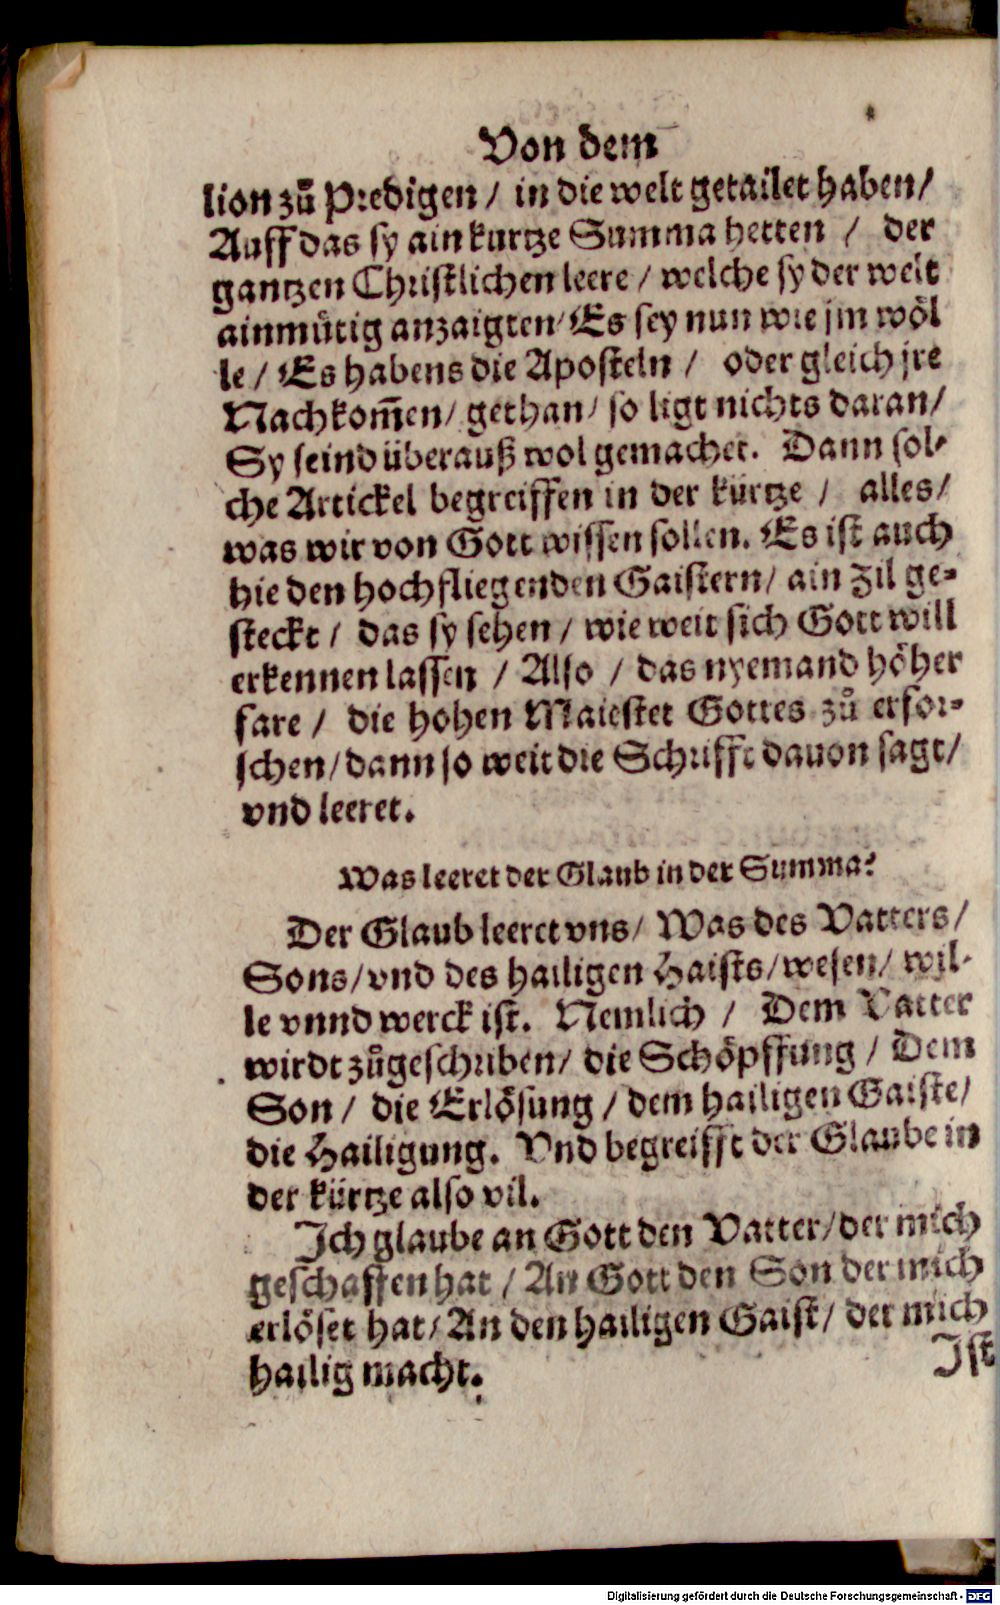 Von dem
lion zů Predigen / in die welt getailet haben /
Auff das sy ain kurtze Summa hetten / der
gantzen Christlichen leere / welche sy der welt
ainmůtig anzaigten / Es sey nun wie jm wöl
le / Es habens die Aposteln / oder gleich jre
Nachkom̄en / gethan / so ligt nichts daran /
Sy seind überauß wol gemachet. Dann sol-
che Artickel begreiffen in der kürtze / alles /
was wir von Gott wissen sollen. Es ist auch
hie den hochfliegenden Gaistern / ain zil ge-
steckt / das sy sehen / wie weit sich Gott will
erkennen lassen / Also / das nyemand höher
fare / die hohen Maiestet Gottes zů erfor-
schen / dann so weit die Schrifft dauon sagt /
vnd leeret.
Was leeret der Glaub in der Summa?
Der Glaub leeret vns / Was des Vatters /
Sons / vnd des hailigen Haists / wesen / wil-
le vnnd werck ist. Nemlich / Dem Vatter
wirdt zůgeschriben / die Schöpffung / Dem
Son / die Erlösung / dem hailigen Gaiste /
die Hailigung. Vnd begreifft der Glaube in
der kürtze also vil.
Ich glaube an Gott den Vatter / der mich
geschaffen hat / An Gott den Son der mich
erlöset hat / An den hailigen Gaist / der mich
hailig macht.
Ist
Digitalisierung gefördert durch die Deutsche Forschungsgemeinschaft - DFG